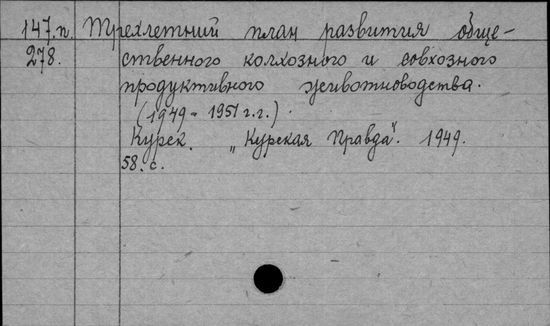 147.п. Трехлетний план развития обще-
278. ственного колхозного и совхозного
продуктивного животноводства.
(1949 - 1951 г.г.).
Курск. „Курская Правда". 1949.
58. с.